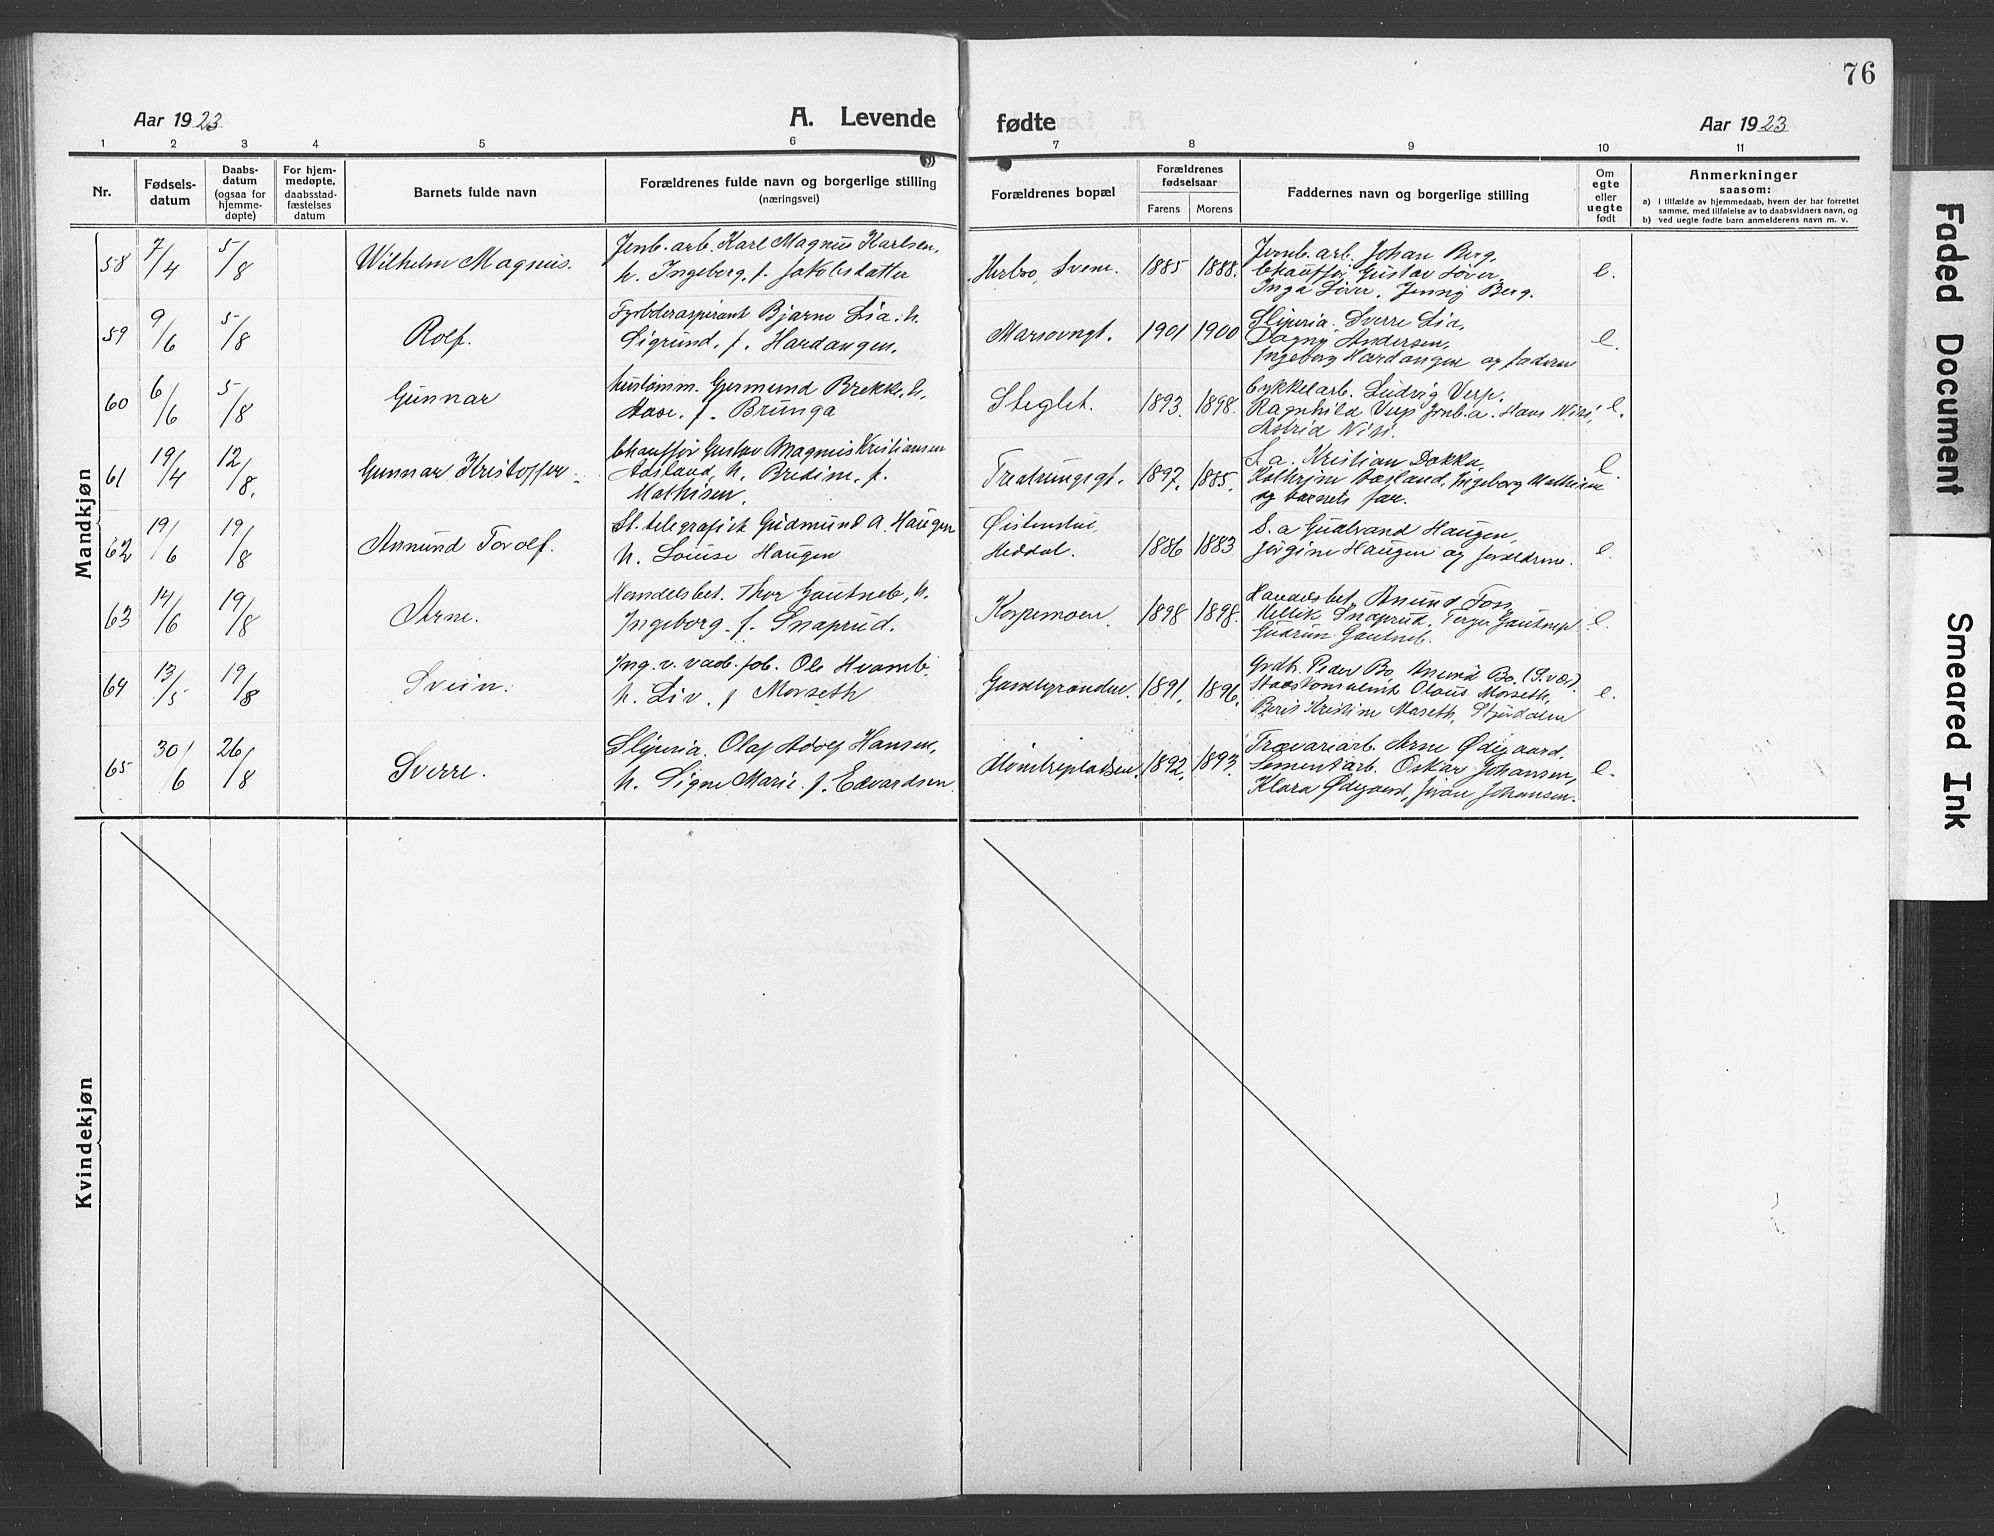 76
Aar 1923
A. Levende
fødte
Aar 1923
1 2 3 4 5 6 7 8 9 10 11
Nr.
Fødsels-
datum
Daabs-
datum
(ogsaa for
hjemme-
døpte)
For hjem-
medøpte,
daabsstad-
fæstelses
datum
Barnets fulde navn
Forældrenes fulde navn og borgerlige stilling
(næringsvei)
Forældrenes bopæl
Forældrenes
fødselsaar
Farens Morens
Faddernes navn og borgerlige stilling
Om
egte
eller
uegte
født
Anmerkninger
saasom:
a) i tilfælde av hjemmedaab, hvem der har forrettet
samme, med tilføielse av to daabsvidners navn, og
b) ved uegte fødte barn anmelderens navn m. v.
Mandkjøn
58 7/4 5/8 Wilhelm Magnus.
Jenb. arb. Karl Magnus Karlsen,
h. Ingeberg, f. Jakobsdatter
Herbro, Svene. 1885 1888.
Jernb. arb. Johan Berg,
Chauffør Gustav Liver,
Inga Liver, Jenny Berg.
e.
59 9/6 5/8 Rolf.
Fyrbøderaspirant Bjarne Lia. h.
Sigrund. f. Hardangen.
1901 1900
Sliperia. Sverre Lia,
Dagny Andersen,
Ingeborg Hardangen og faderen
e.
60 6/6 5/8 Gunnar
Gurmund Brekke, h.
Aase, f. Brunga
Steglet. 1893. 1898.
Cykkelarb. Ludvig Verp,
Ragnhild Verp Jrnb.a. Hans Wisi,
Astrid Wisi.
e.
61 19/4 12/8. Gunnar Kristoffer
Chauffør Gustav Magnus Kristiansen
Aasland, h. Bredine, f.
Mathisen.
1897. 1885.
S. a. Kristian Dokka,
Kathrine Aasland, Ingeborg Mathisen
og barnets far.
e.
62 19/6 19/8 Amund Torolf.
St. telegrafist Gudmund A. Haugen
h. Louise Haugen
Heddal. 1886 1883
S. a Gudbrand Haugen,
Jørgine Haugen og forældrene.
e.
63 14/6 19/8 Arne.
Handelsbet. Thor Gautneb, h.
Ingeborg. f. Snaprud.
Korpemoen. 1898 1898.
Handelsbet. Amund Foss,
Snaprud, Terger Gautneb
Gudrun Gautneb.
e.
64 13/5 19/8 Svein.
Ing. v. vaab. fab. Ole Hvamb,
h. Liv. f Morseth
Gamlegrenden. 1891. 1896.
Grdbr. Peder Bo, Bo. (S.vær).
Olaus Morseth,
Berit Kristine Morseth, Stjørdalen
e.
65 30/6 26/8 Sverre.
Sliperia. Olaf Adolf Hansen,
h. Signe Marie. f. Edvardsen.
1892. 1893.
Trævarearb. Arne Ødegaard,
Sementarb. Oskar Johansen,
Klara Ødegaard, Johansen.
e.
Kvindekjøn
Faded Document
Smeared Ink